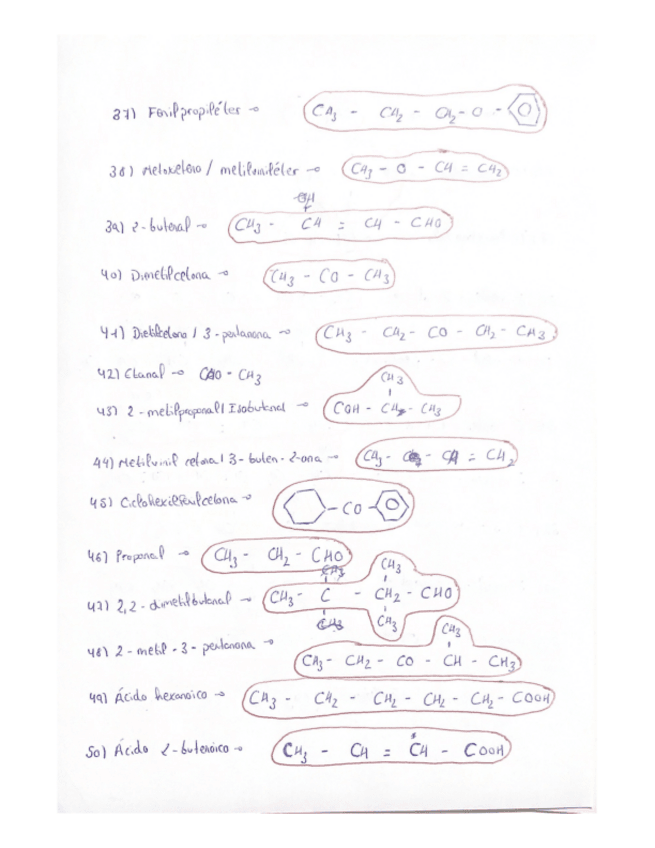 37) Fenilpropiléter → CH3 - CH2 - CH2 - O -
38) Metoxieteno / metilviniléter → CH3 - O - CH = CH2
39) 2-butenal → CH3 - CH = CH - CHO
40) Dimetilcetona → CH3 - CO - CH3
41) Dietilcetona / 3-pentanona → CH3 - CH2 - CO - CH2 - CH3
42) Etanal → CHO - CH3
CH3
43) 2-metilpropanal / Isobutanal → COH - CH - CH3
44) Metilvinil cetona / 3-buten-2-ona → CH3 - - CH = CH2
45) Ciclohexilfenilcetona → - CO -
46) Propanal → CH3 - CH2 - CHO
CH3
47) 2,2-dimetilbutanal → CH3 - C - CH2 - CHO
CH3
CH3
48) 2-metil-3-pentanona → CH3 - CH2 - CO - CH - CH3
49) Ácido hexanoico → CH3 - CH2 - CH2 - CH2 - CH2 - COOH
50) Ácido 2-butenoico → CH3 - CH = CH - COOH